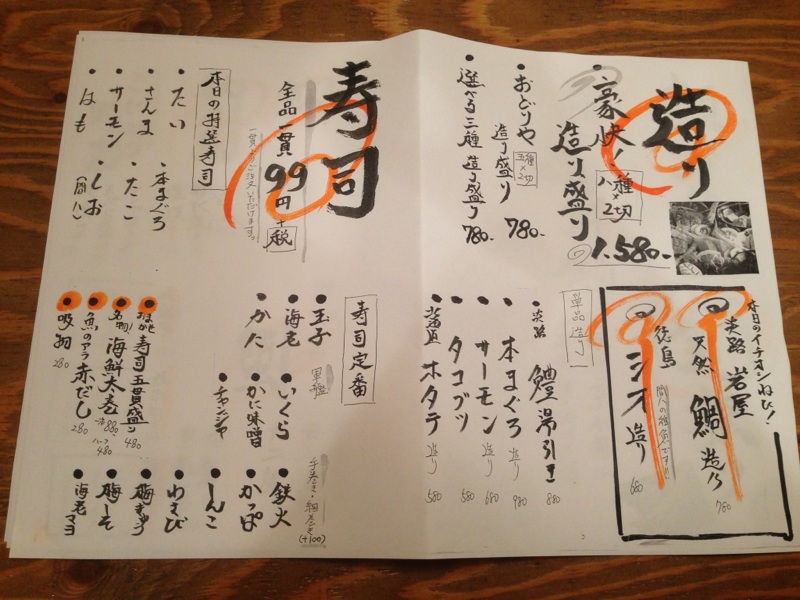 造り
豪快!
造り盛り
八種×2切
1.580-
おどりや
造り盛り
五種×2切
780-
選べる三種 造り盛り 780-
本日のイチオシねた!
淡路 岩屋
天然 鯛 造り
780
徳島
シオ 造り
680
単品造り
淡路 鱧 湯引き 880
本まぐろ 造り 980
サーモン 造り 680
タコブツ 580
ホタテ 造り 580
寿司
全品一貫
99円+税
一貫よりご注文いただけます。
本日の特選寿司
たい
さんま
サーモン
はも
本まぐろ
たこ
しお (間八)
寿司定番
玉子
海老
かた
軍艦
いくら
かに味噌
チャンジャ
手巻き・細巻き (+100)
鉄火
かっぱ
しんこ
わさび
梅きゅう
梅しそ
海老マヨ
おまかせ 寿司五貫盛り 480
名物! 海鮮太巻 一本 880 ハーフ 480
魚のアラ 赤だし 280
吸物 280